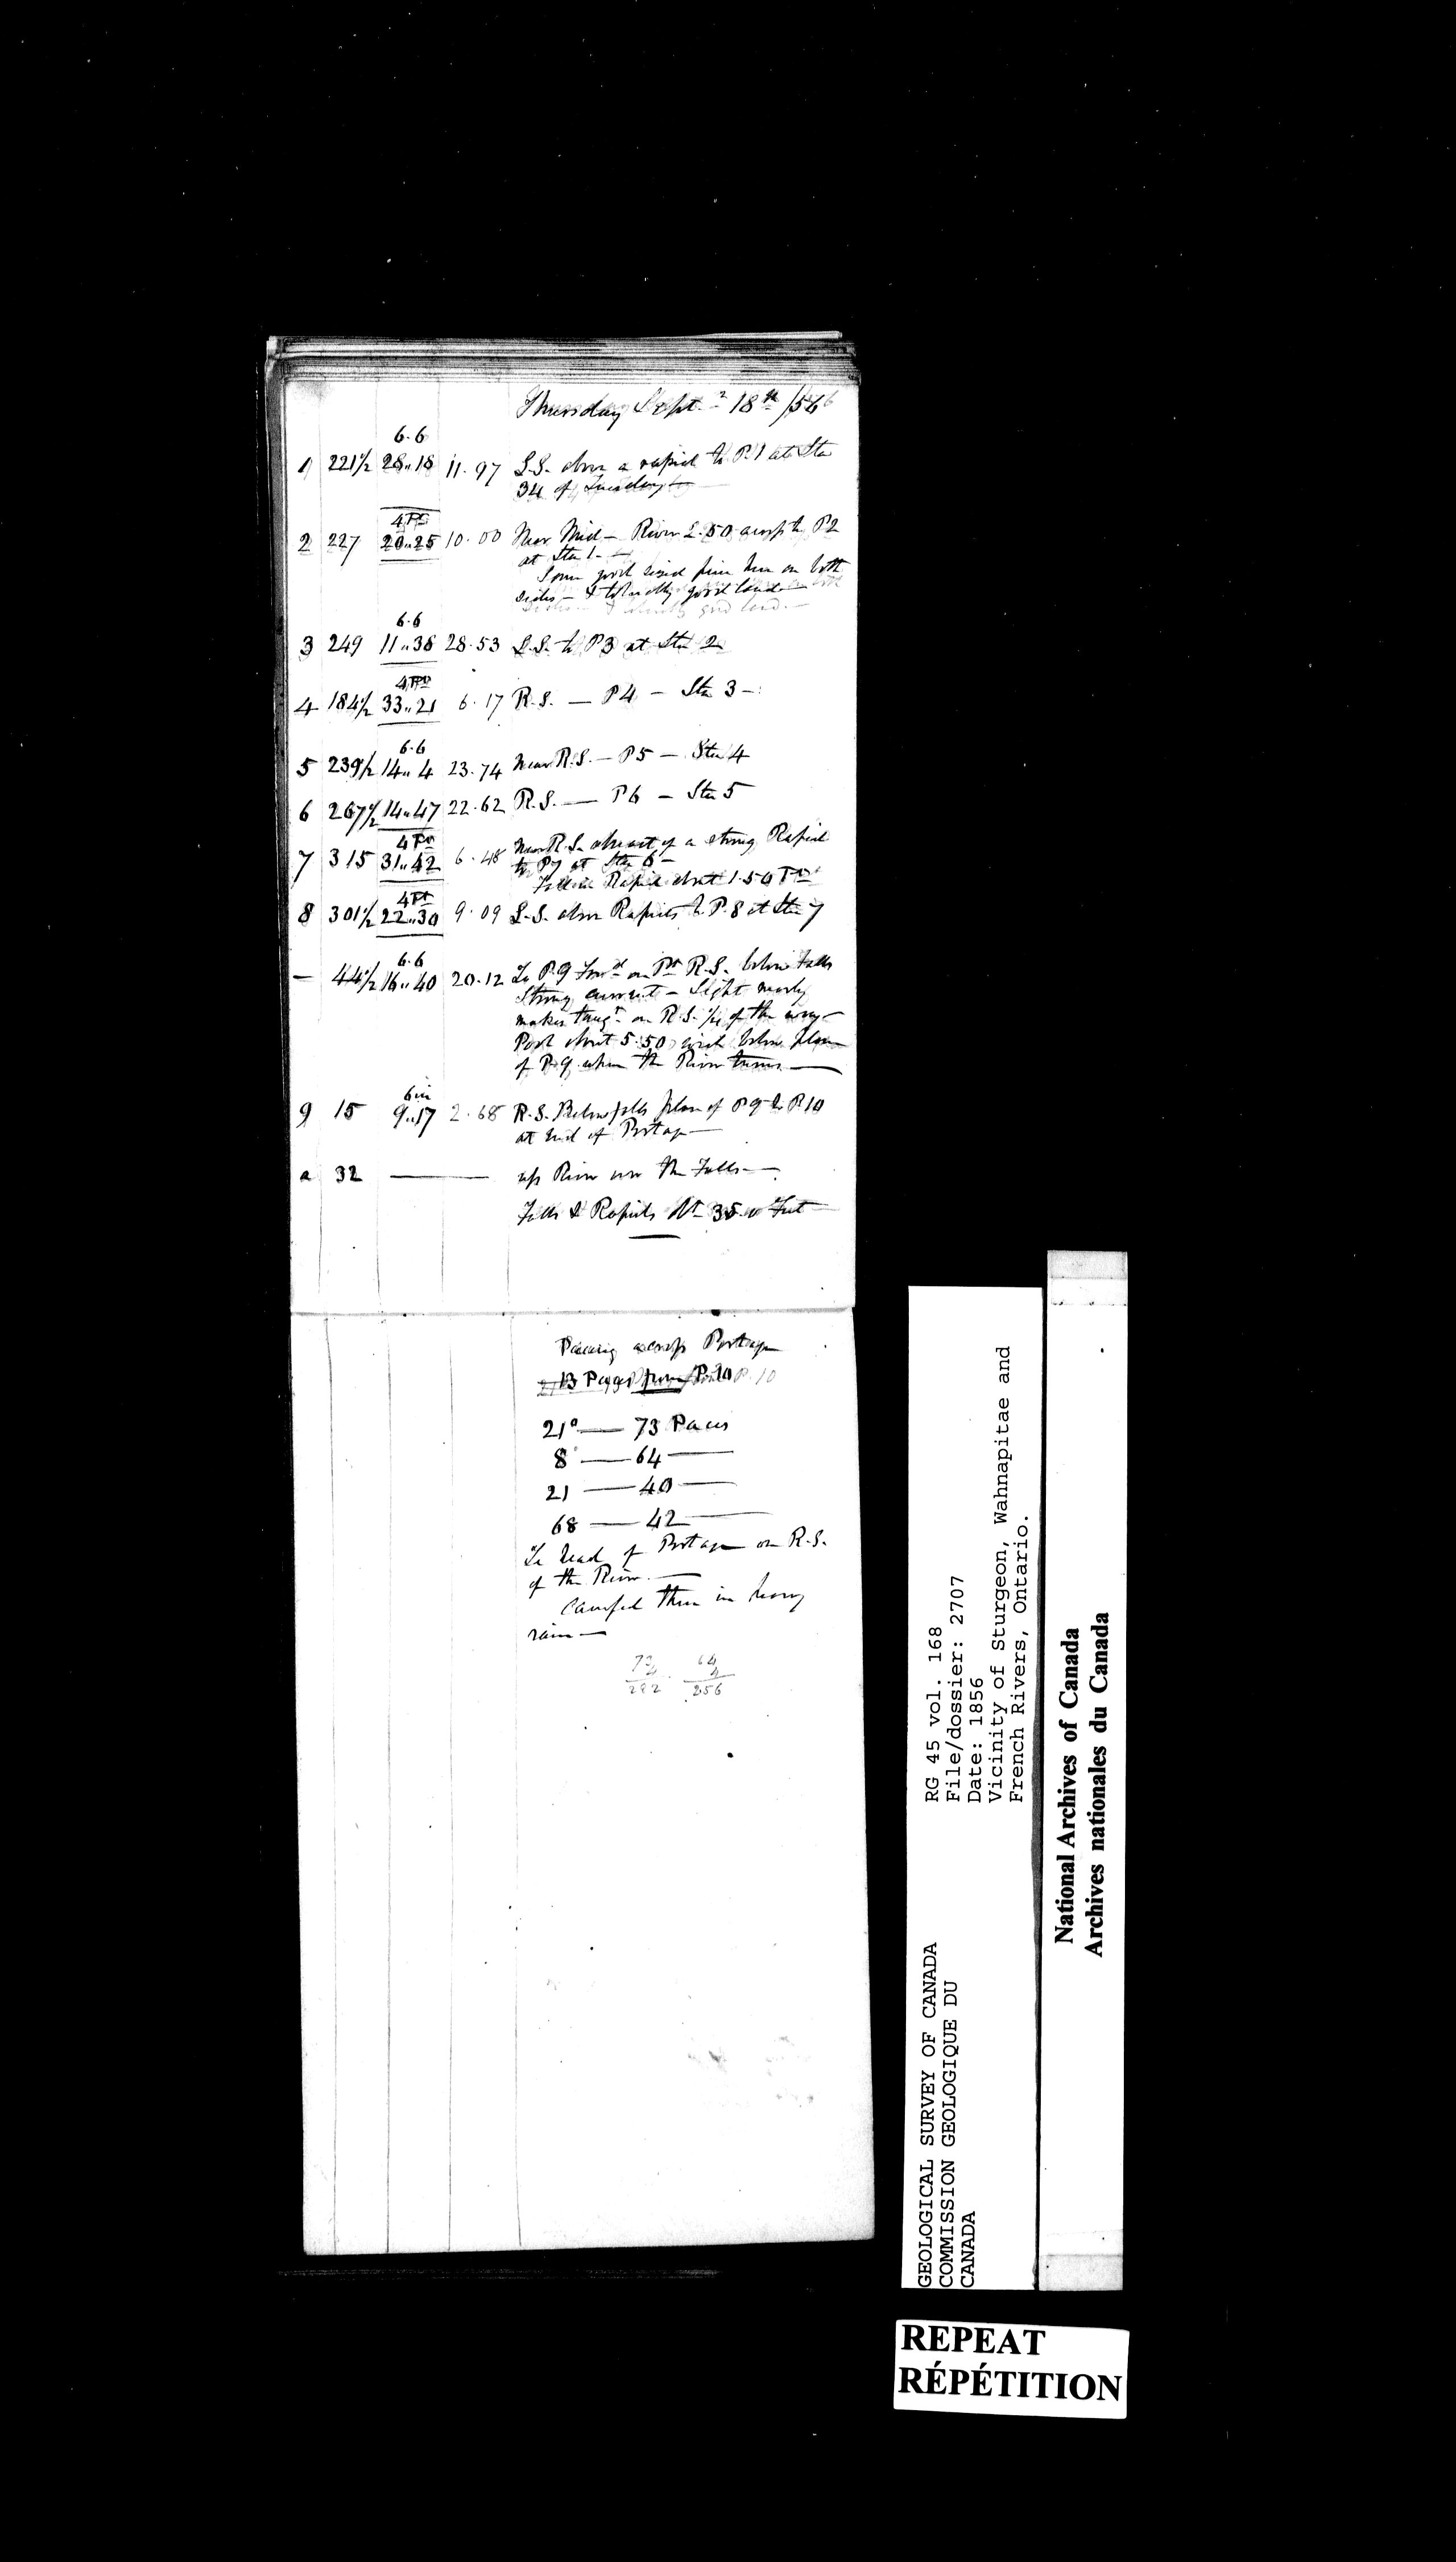 Thursday Sept. 18th /56
6.6
1 221½ 28..18 11.97 L.S. above a rapid to P.1 at Sta
34 of Tuesday —
4 Po
2 227 20..25 10.00 Near Mid — River L.50 across to P2
at Sta 1. —
Some good sized pine here on both
sides — & tolerably good land —
6.6
3 249 11..38 28.53 L.S. to P3 at Sta 2
4 Po
4 184½ 33..21 6.17 R.S. — P4 — Sta 3 —
6.6
5 239½ 14..4 23.74 Near R.S. — P5 — Sta 4
6 267½ 14..47 22.62 R.S. — P6 — Sta 5
4 Po
7 315 31..42 6.48 Near R.S. abreast of a strong Rapid
to P7 at Sta 6 —
Fall in Rapid about 1.50 Ft
4 Po
8 301½ 22..30 9.09 L.S. above Rapids to P.8 at Sta 7
6.6
— 44½ 16..40 20.12 To P.9 on Pt R.S. below Falls
Strong current — Sight nearly
makes tangt on R.S. ¼ of the way —
Pool about 5.50 wide below place
of P.9 where the River turns —
6 in
9 15 9..17 2.68 R.S. Below falls place of P9 to P.10
at end of Portage —
a 32 — up River over the Falls —
Falls & Rapids Ht 35..0 Feet
Pacing across Portage
P.10
21° — 73 Paces
8 — 64 —
21 — 40 —
68 — 42 —
To head of Portage on R.S.
of the River. —
Camped there in heavy
rain —
73 64
4 4
282 256
GEOLOGICAL SURVEY OF CANADA
COMMISSION GEOLOGIQUE DU
CANADA
RG 45 vol. 168
File/dossier: 2707
Date: 1856
Vicinity of Sturgeon, Wahnapitae and
French Rivers, Ontario.
National Archives of Canada
Archives nationales du Canada
REPEAT
RÉPÉTITION